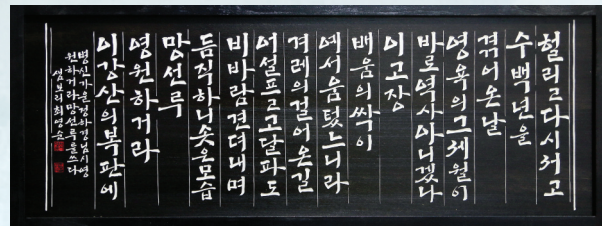 헐리고 다시 서고
수백년을
겪어온 날
영욕의 그 세월이
바로 역사 아니겠나
이 고장
배움의 싹이
예서 움텄느니라
겨레의 걸어온 길
어설프고 고달파도
비바람 견뎌내며
듬직하니 솟은 모습
망선루
영원하거라
이 강산의 복판에
병신가을 정하경님 시 영
원하거라 망선루를 쓰다
샘보리 최영순